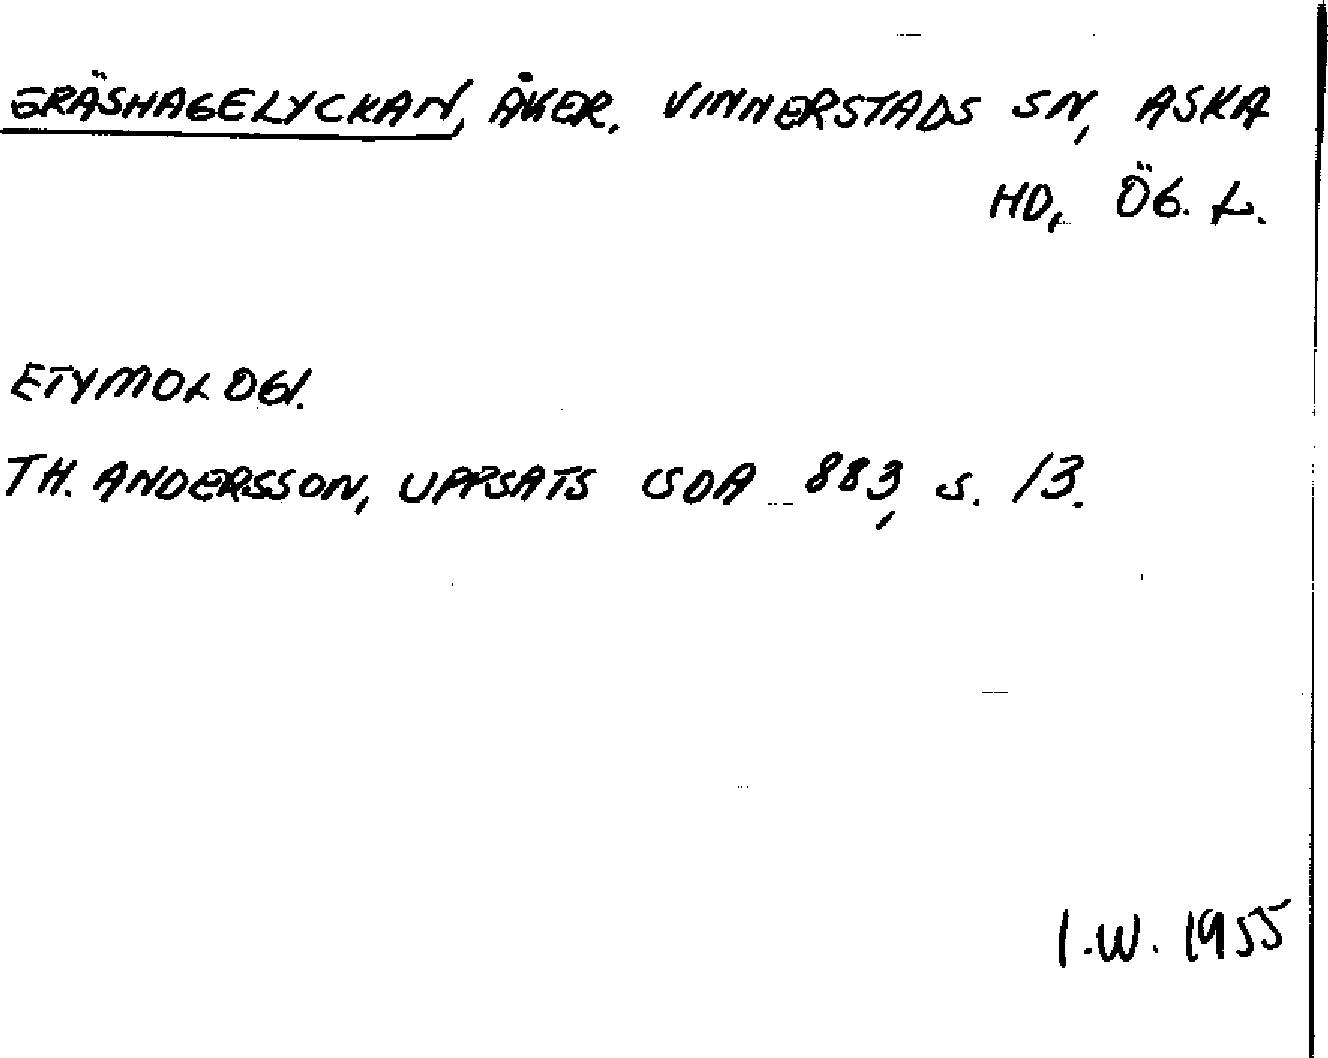 GRÄSHAGELYCKAN, ÅKER. VINNERSTADS SN, ASKA
HD, ÖG. L.
ETYMOLOGI.
TH. ANDERSSON, UPPSATS SOA 883, S. 13.
I.W. 1955